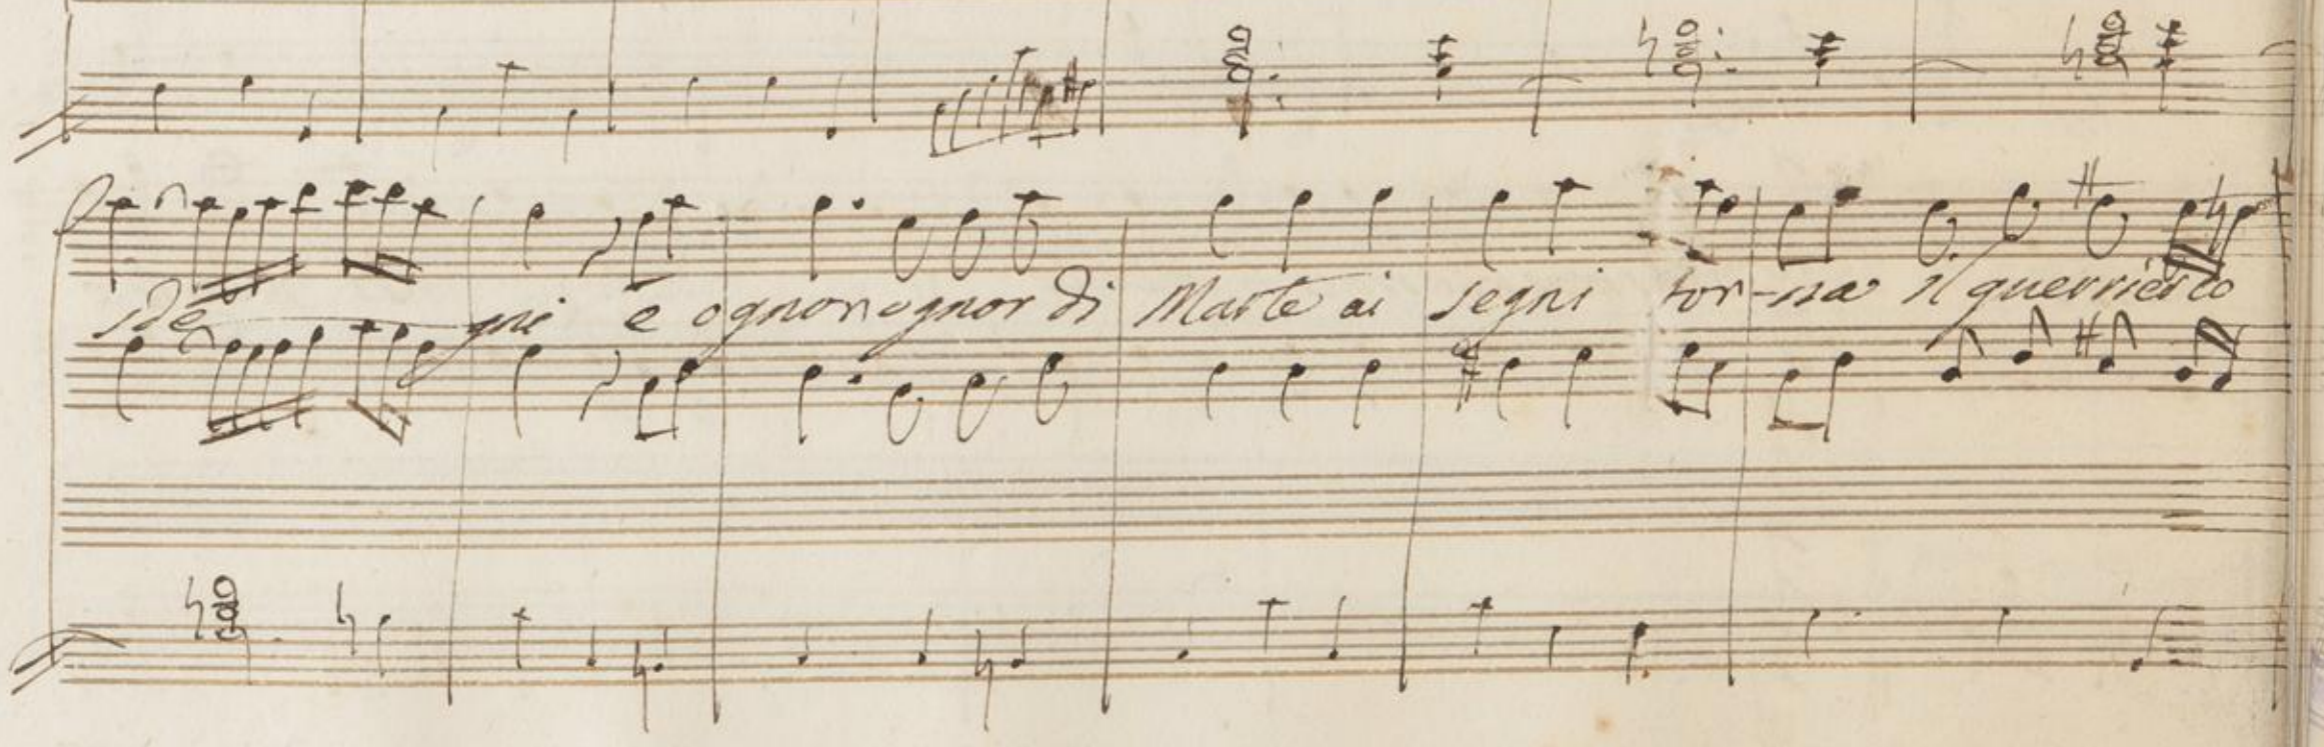 sde gni e ognor ognor di Marte ai segni tor-na il guerriero